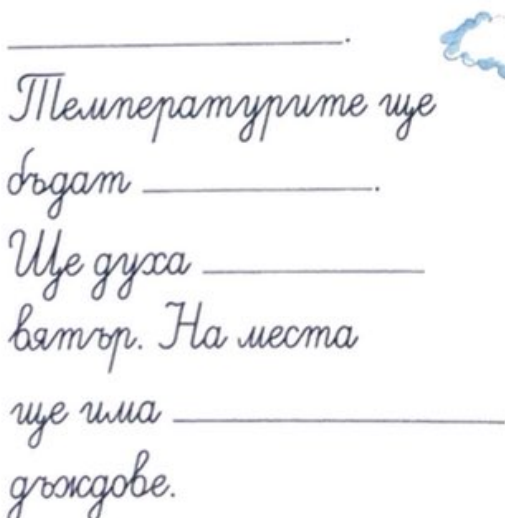 ____________________.
Температурите ще
бъдат ______________.
Ще духа ______________
вятър. На места
ще има ____________________
дъждове.